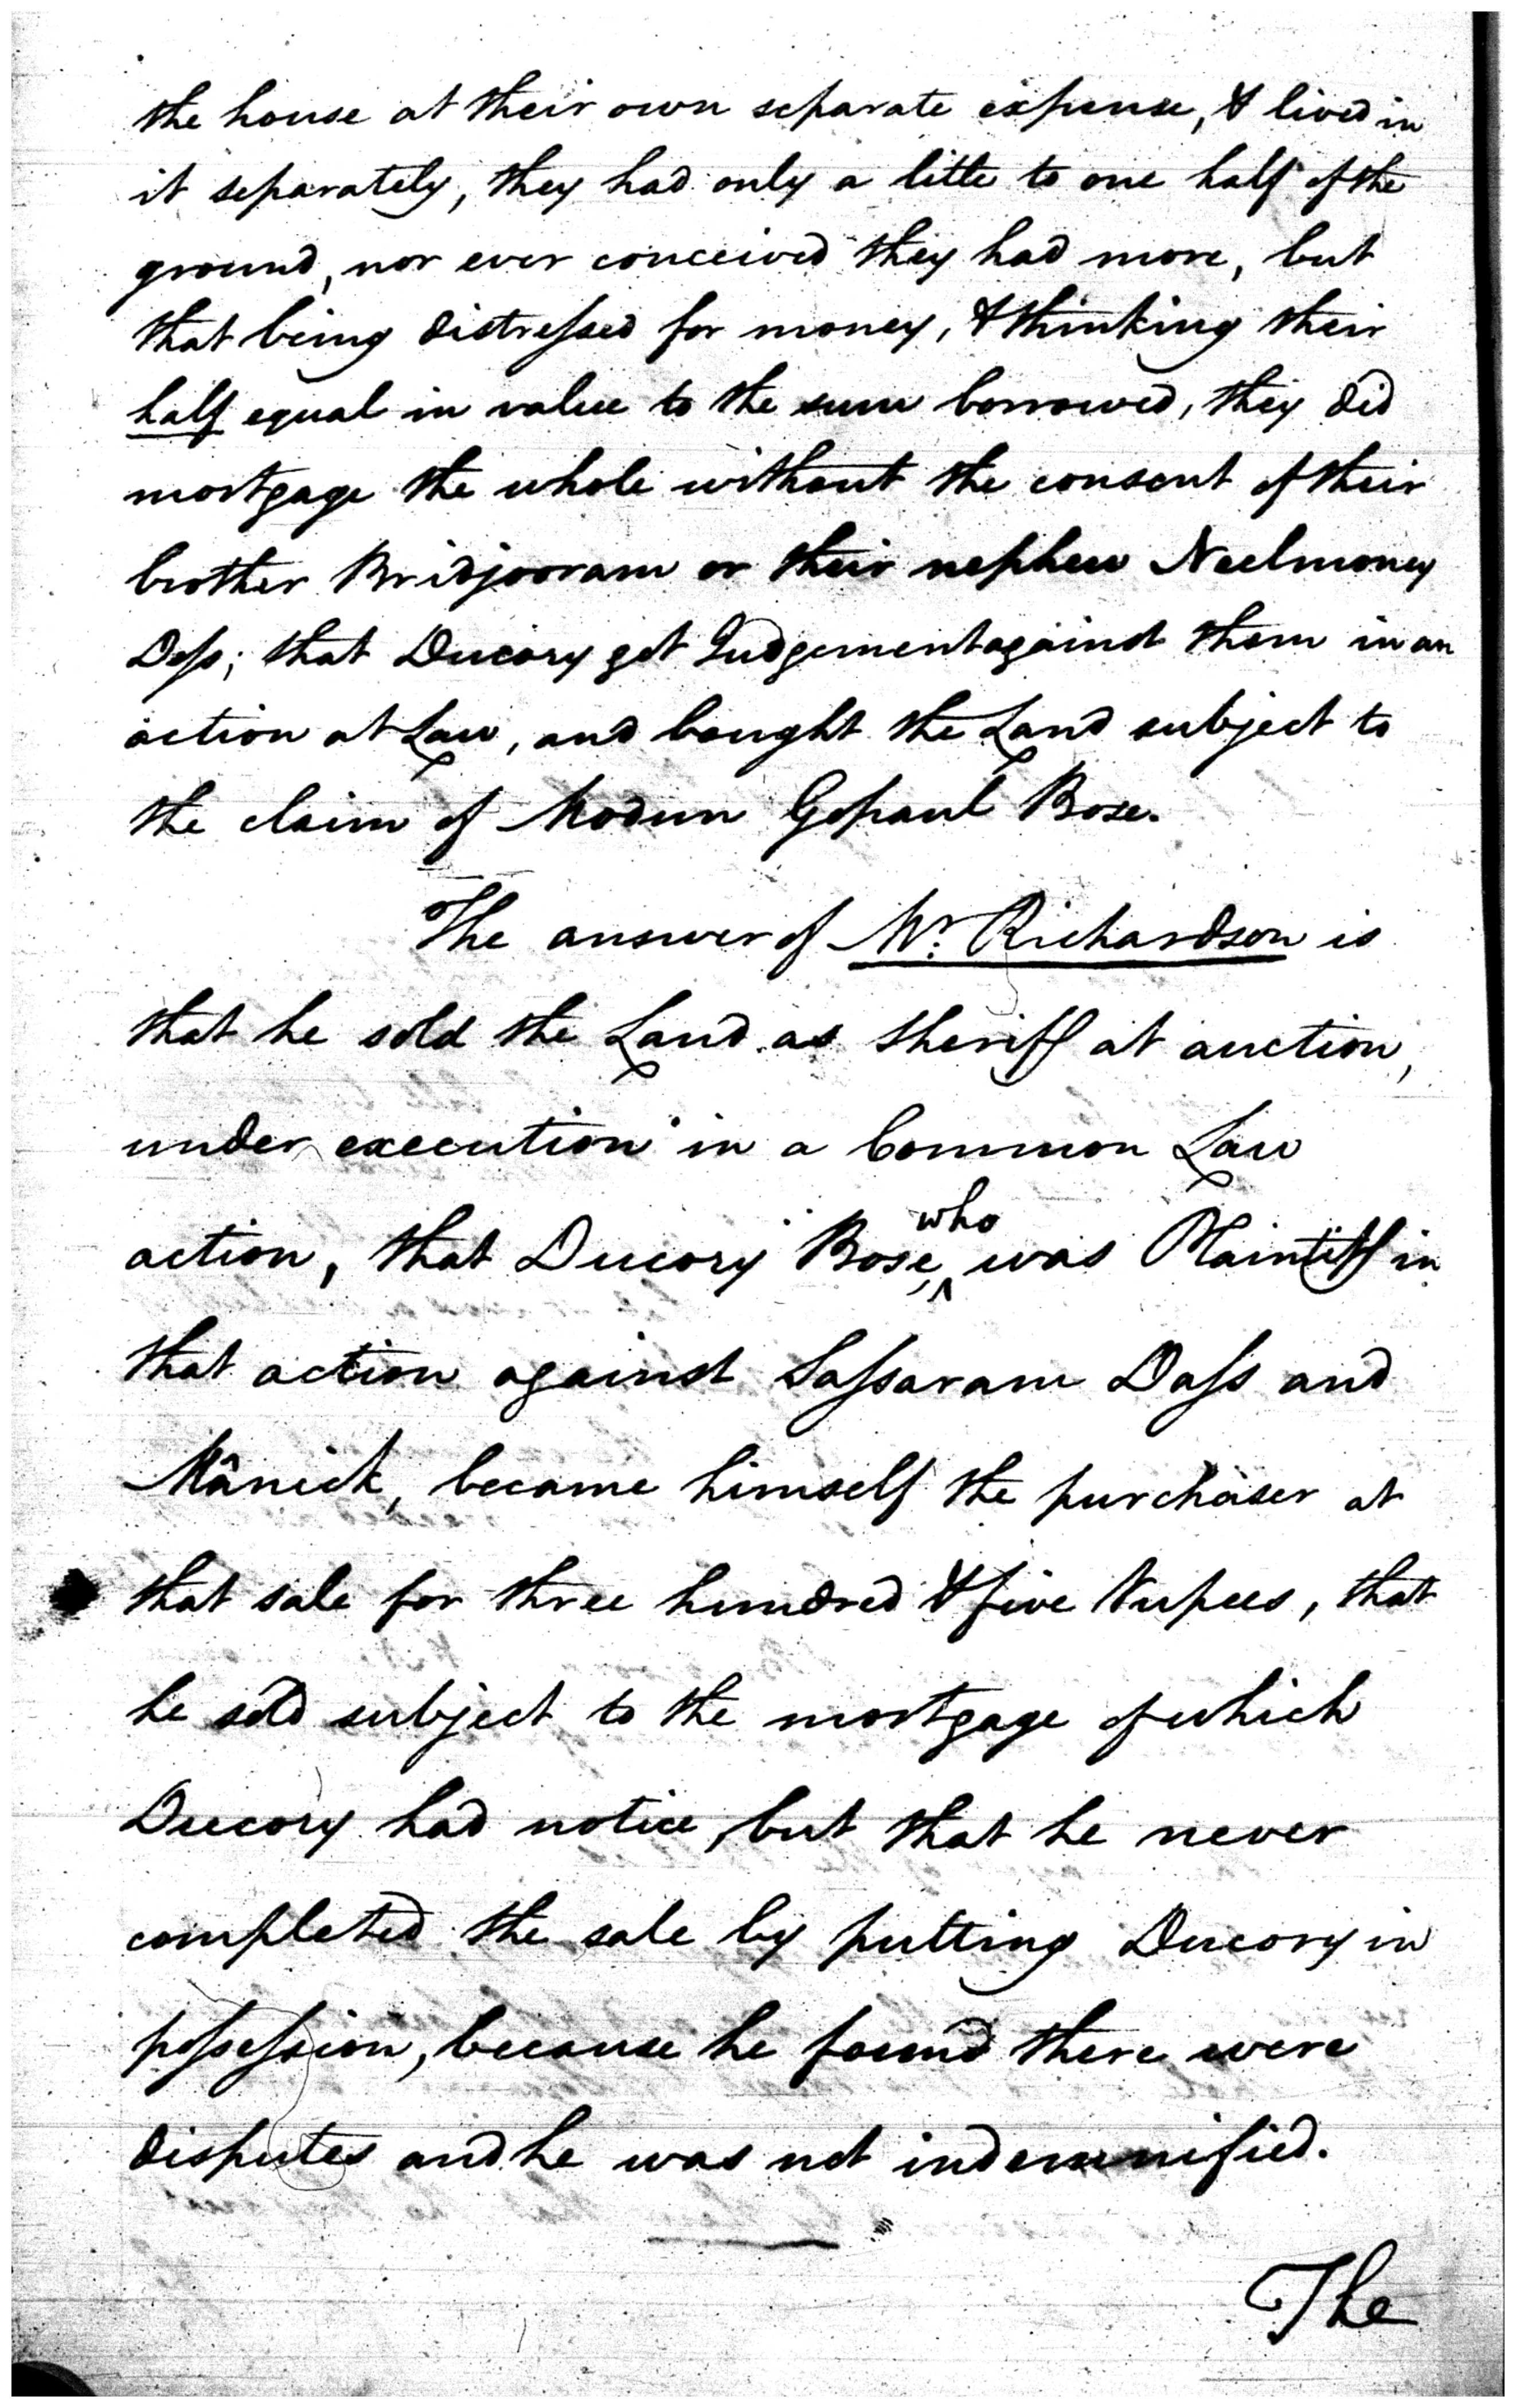 the house at their own separate expense, & lived in
it separately, they had only a title to one half of the
ground, nor ever conceived they had more, but
that being distreſsed for money, & thinking their
half equal in value to the sum borrowed, they did
mortgage the whole without the consent of their
brother Bridjooram or their nephew Neelmoney
Doſs; that Ducory got Judgement against them in an
action at Law, and bought the Land subject to
the claim of Modun Gopaul Bose.
The answer of Mr. Richardson is
that he sold the Land as Sheriff at auction,
under execution in a Common Law
action, that Ducory Bose, who was Plaintiff in
that action against Saſsaram Daſs and
Mânick, became himself the purchaser at
that sale for three hundred & five Rupees, that
he sold subject to the mortgage of which
Ducory had notice, but that he never
completed the sale by putting Ducory in
poſseſsion, because he found there were
disputes and he was not indemnified.
The